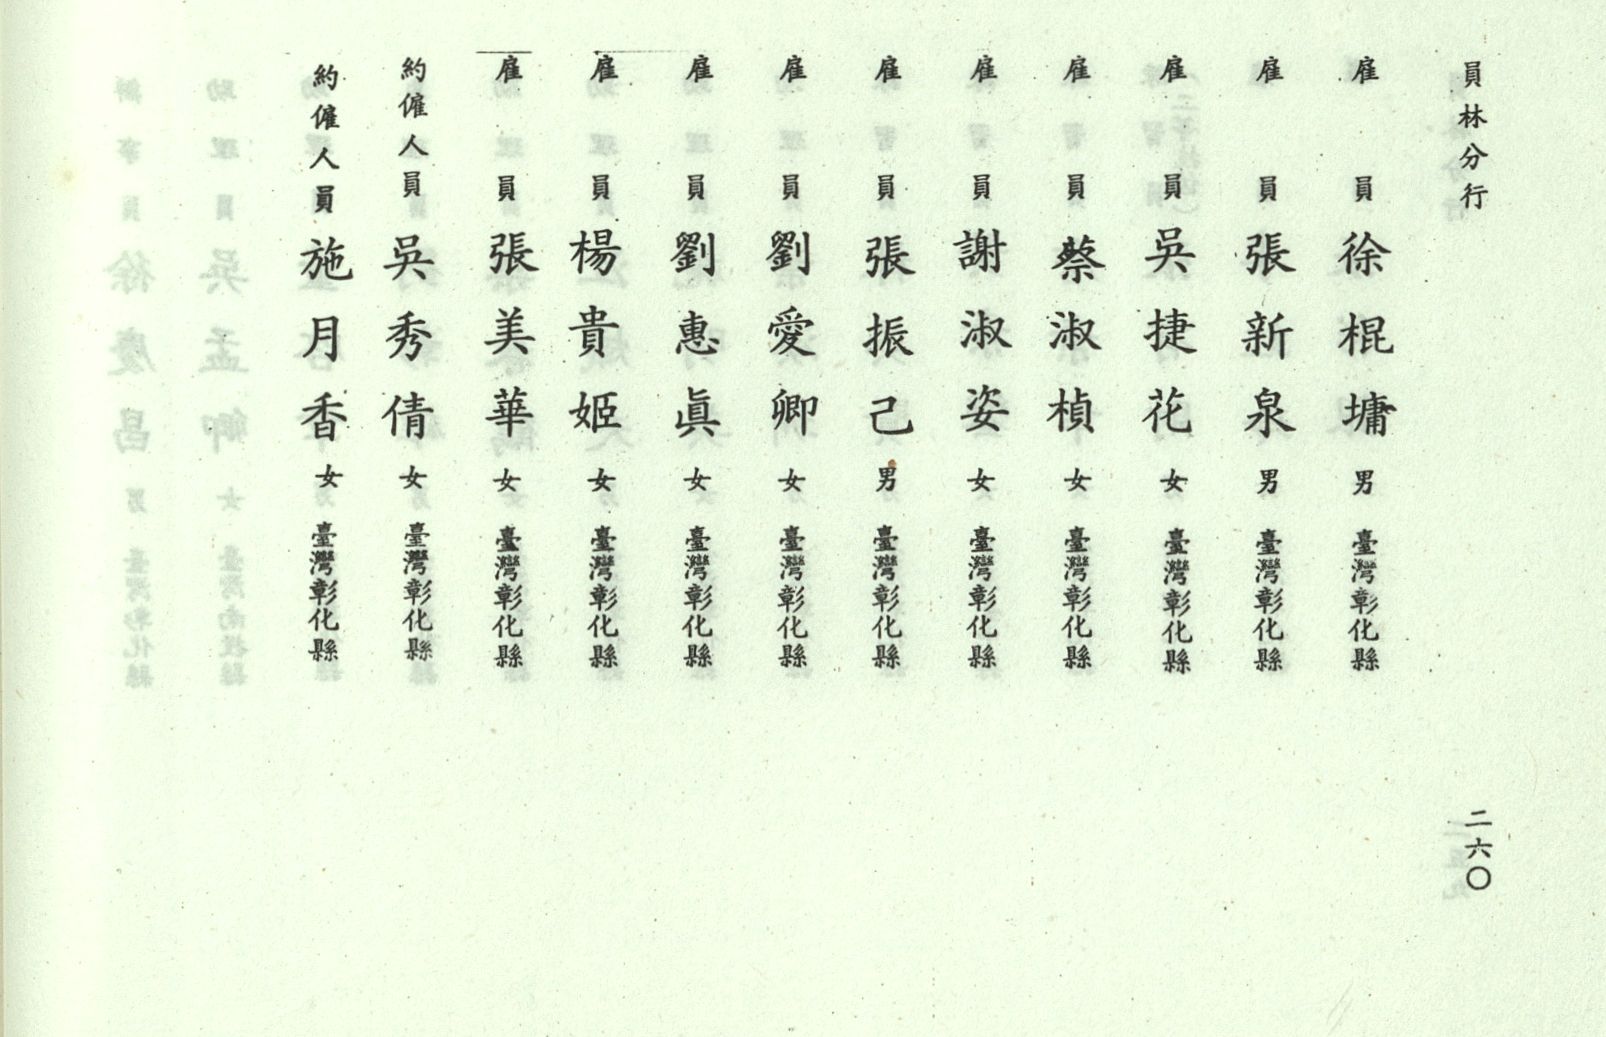 員林分行
二六〇
雇員徐棍墉男臺灣彰化縣
雇員張新泉男臺灣彰化縣
雇員吳捷花女臺灣彰化縣
雇員蔡淑楨女臺灣彰化縣
雇員謝淑姿女臺灣彰化縣
雇員張振己男臺灣彰化縣
雇員劉愛卿女臺灣彰化縣
雇員劉惠眞女臺灣彰化縣
雇員楊貴姬女臺灣彰化縣
雇員張美華女臺灣彰化縣
約僱人員吳秀倩女臺灣彰化縣
約僱人員施月香女臺灣彰化縣